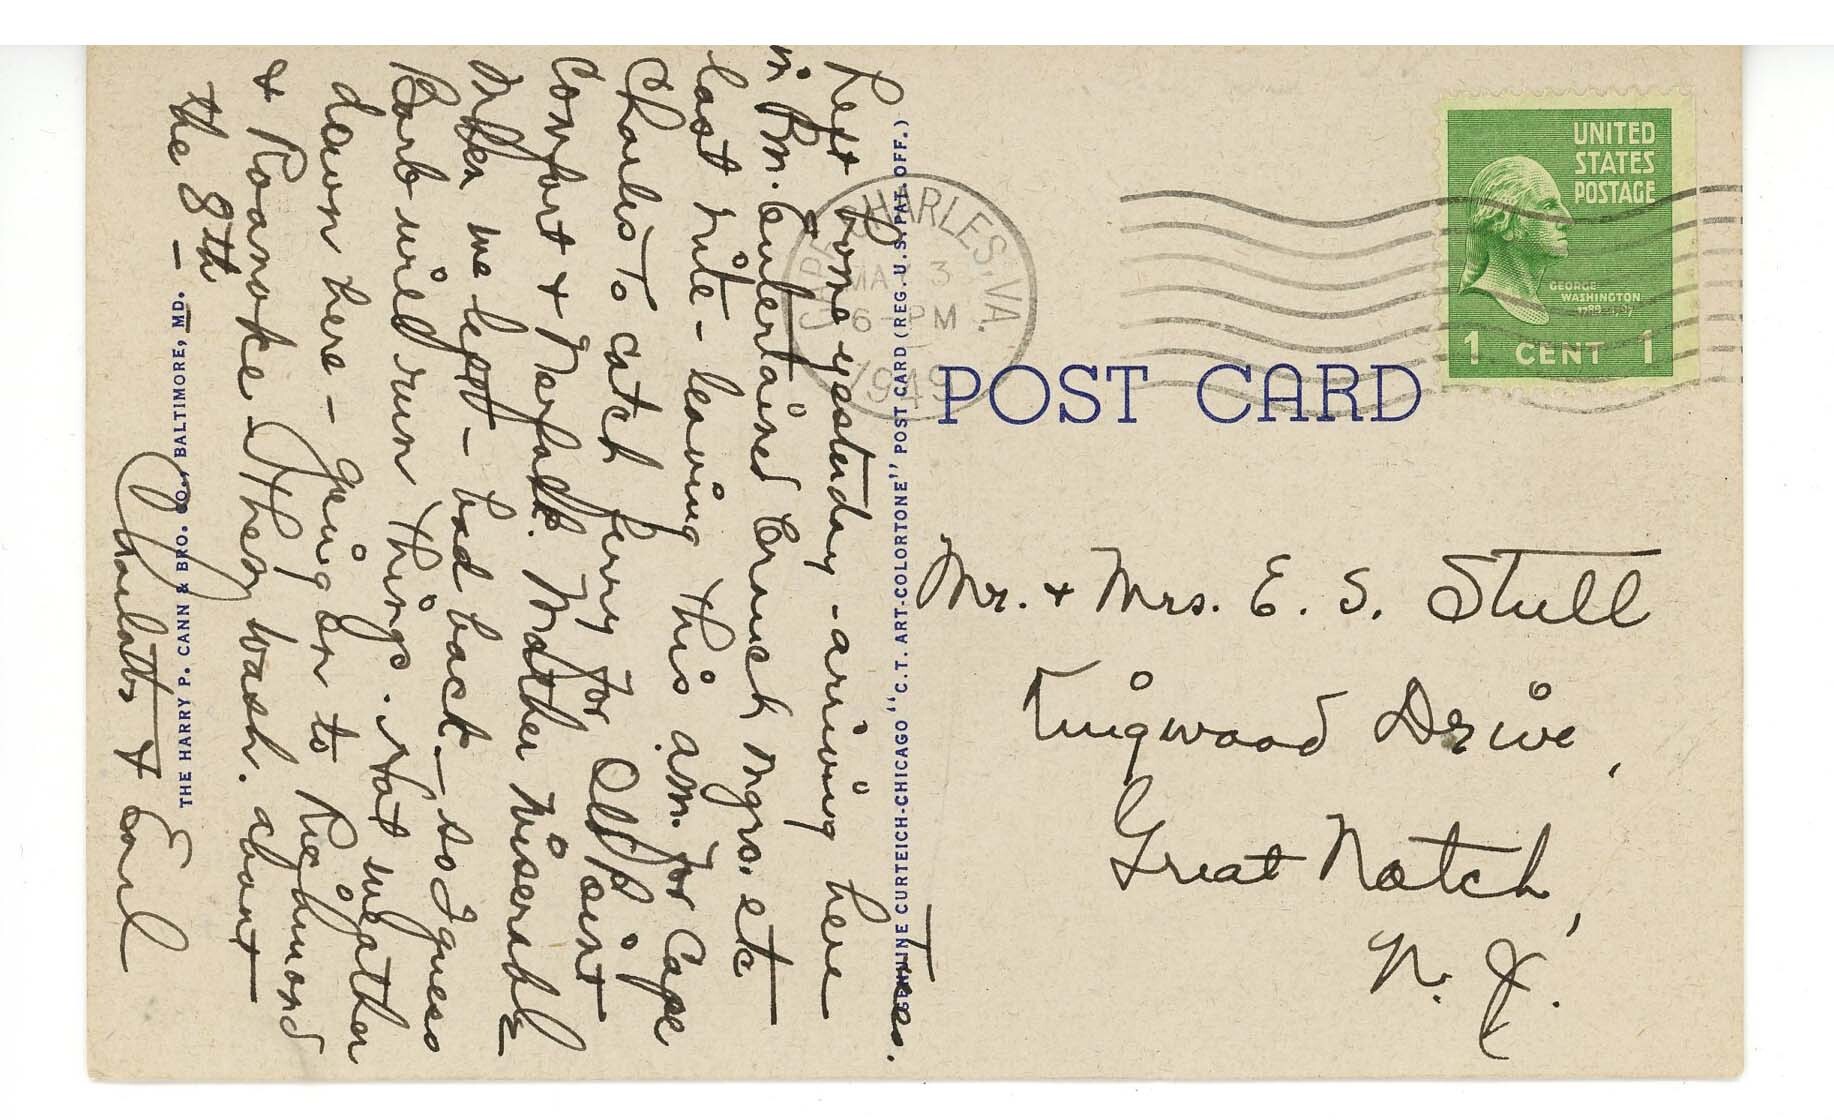 Tues.
Left home yesterday - arriving here
in Bm. Entertained Branch Mgrs. etc
last nite - leaving this a.m. for Cape
Charles to catch ferry for Old Point
Comfort & Norfolk. Mother miserable
when we left - bad back - so I guess
Barb will run things. Hot weather
down here - going on to Richmond
& Roanoke then Wash. about
the 8th
Charlotte & Earl
Mr. & Mrs. E. S. Stull
Ringwood Drive,
Great Notch,
N. J.
POST CARD
CAPE CHARLES, VA.
MAY 3
6 - PM
1949
UNITED
STATES
POSTAGE
GEORGE
WASHINGTON
1789-1797
1 CENT 1
GENUINE CURTEICH-CHICAGO "C.T. ART-COLORTONE" POST CARD (REG. U.S. PAT. OFF.)
THE HARRY P. CANN & BRO. CO., BALTIMORE, MD.